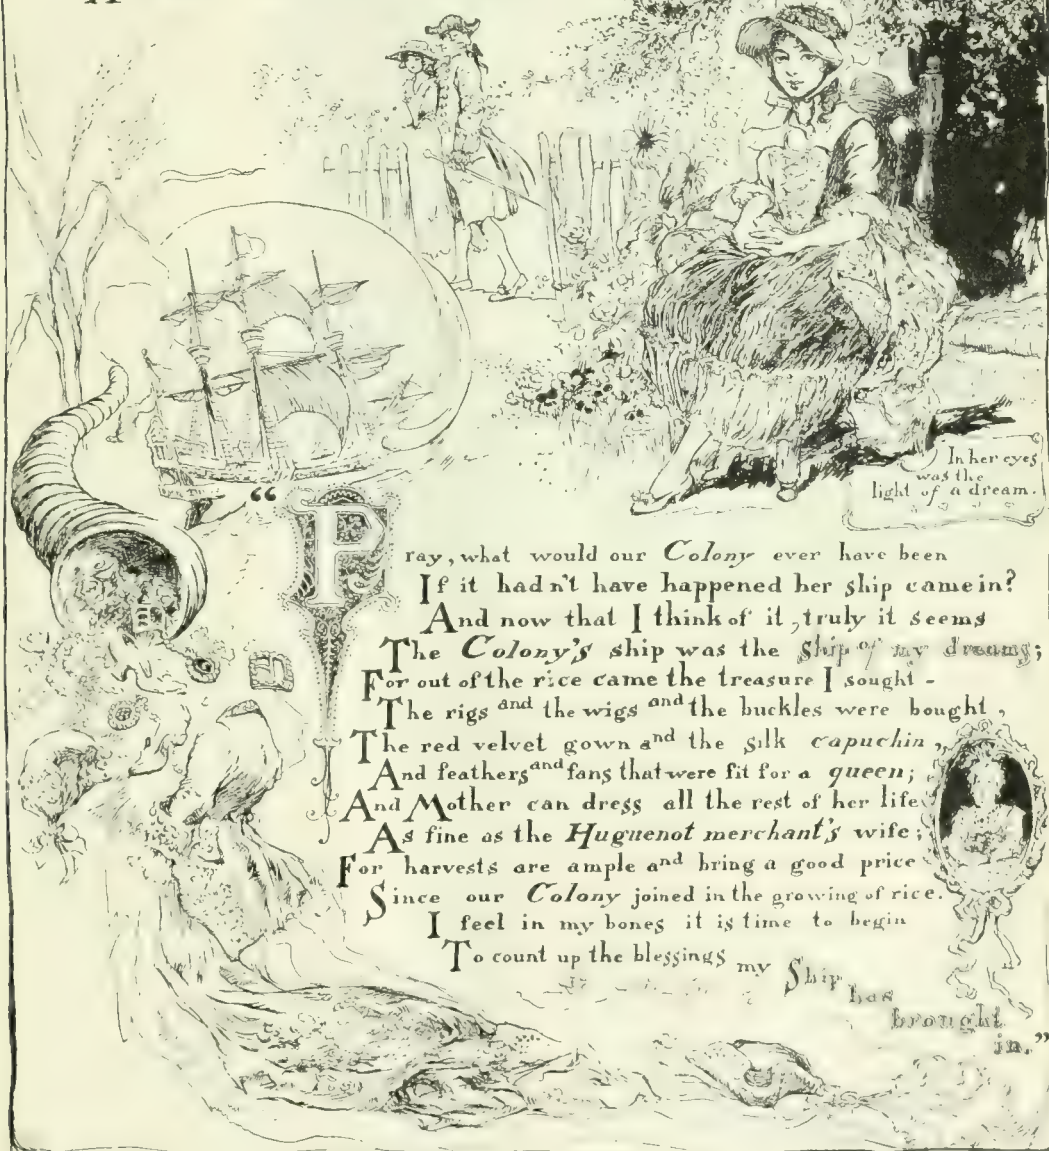 In her eyes
was the
light of a dream.
"Pray, what would our Colony ever have been
If it hadn't have happened her ship came in?
And now that I think of it, truly it seems
The Colony's ship was the ship of my dreams;
For out of the rice came the treasure I sought -
The rigs and the wigs and the buckles were bought,
The red velvet gown and the silk capuchin,
And feathers and fans that were fit for a queen;
And Mother can dress all the rest of her life
As fine as the Huguenot merchant's wife;
For harvests are ample and bring a good price
Since our Colony joined in the growing of rice.
I feel in my bones it is time to begin
To count up the blessings my Ship
has
brought
in."